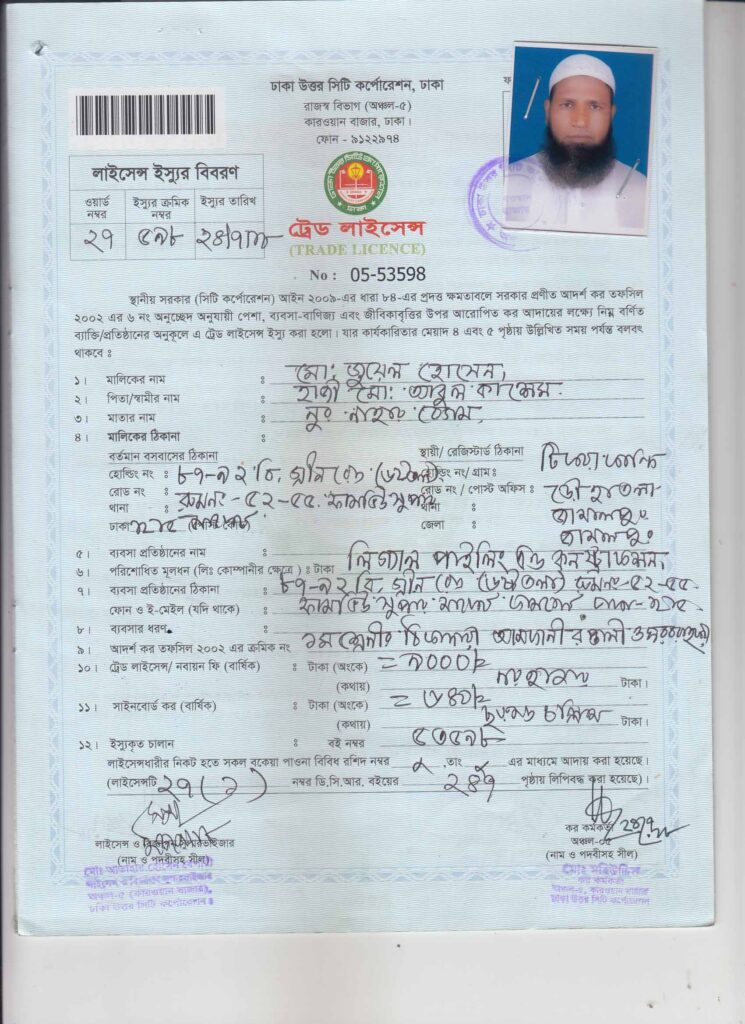 ঢাকা উত্তর সিটি কর্পোরেশন, ঢাকা
রাজস্ব বিভাগ (অঞ্চল-৫)
কারওয়ান বাজার, ঢাকা।
ফোন - ৯১২২৯৭৪
লাইসেন্স ইস্যুর বিবরণ
ওয়ার্ড নম্বর ইস্যুর ক্রমিক নম্বর ইস্যুর তারিখ
২৭ ৫৯৮
ট্রেড লাইসেন্স
(TRADE LICENCE)
No : 05-53598
স্থানীয় সরকার (সিটি কর্পোরেশন) আইন ২০০৯-এর ধারা ৮৪-এর প্রদত্ত ক্ষমতাবলে সরকার প্রণীত আদর্শ কর তফসিল
২০০২ এর ৬ নং অনুচ্ছেদ অনুযায়ী পেশা, ব্যবসা-বাণিজ্য এবং জীবিকাবৃত্তির উপর আরোপিত কর আদায়ের লক্ষ্যে নিম্ন বর্ণিত
ব্যাক্তি/প্রতিষ্ঠানের অনুকূলে এ ট্রেড লাইসেন্স ইস্যু করা হলো। যার কার্যকারিতার মেয়াদ ৪ এবং ৫ পৃষ্ঠায় উল্লিখিত সময় পর্যন্ত বলবৎ
থাকবে ঃ
১। মালিকের নাম ঃ মোঃ জুয়েল হোসেন,
২। পিতা/স্বামীর নাম ঃ হাজী মোঃ আবুল কাশেম.
৩। মাতার নাম ঃ নুর নাহার বেগম,
৪। মালিকের ঠিকানা
বর্তমান বসবাসের ঠিকানা স্থায়ী/ রেজিস্টার্ড ঠিকানা
হোল্ডিং নং ঃ ৮৭-৯২ বি, গ্রীন রোড হোল্ডিং নং/ গ্রাম ঃ
রোড নং ঃ রুম নং - ৫২-৫৫. রোড নং / পোস্ট অফিস ঃ
থানা ঃ থানা ঃ জামালপুর
ঢাকা জেলা ঃ জামালপুর
৫। ব্যবসা প্রতিষ্ঠানের নাম ঃ লিগ্যাল পাইলিং এন্ড কনস্ট্রাকশন,
৬। পরিশোধিত মূলধন (লিঃ কোম্পানীর ক্ষেত্রে ) ঃ টাকা
৭। ব্যবসা প্রতিষ্ঠানের ঠিকানা ঃ ৮৭-৯২ বি, গ্রীন রোড রুম নং-৫২-৫৫
ফোন ও ই-মেইল (যদি থাকে) ঃ সুপার মার্কেট
৮। ব্যবসার ধরণ ঃ ১ম শ্রেনীর ঠিকাদারী আমদানী রপ্তানী ও সরবরাহকারী
৯। আদর্শ কর তফসিল ২০০২ এর ক্রমিক নং
১০। ট্রেড লাইসেন্স/ নবায়ন ফি (বার্ষিক) ঃ টাকা (অংকে) = ৯০০০/=
(কথায়) নয় হাজার টাকা।
১১। সাইনবোর্ড কর (বার্ষিক) ঃ টাকা (অংকে) = ৬৪০/=
(কথায়) ছয়শত চল্লিশ টাকা।
১২। ইস্যুকৃত চালান ঃ বই নম্বর ৫৩৫৯৮
লাইসেন্সধারীর নিকট হতে সকল বকেয়া পাওনা বিবিধ রশিদ নম্বর তাং এর মাধ্যমে আদায় করা হয়েছে।
(লাইসেন্সটি ২৭(১) নম্বর ডি.সি.আর. বইয়ের পৃষ্ঠায় লিপিবদ্ধ করা হয়েছে)।
লাইসেন্স ও সুপারভাইজার
(নাম ও পদবীসহ সীল)
কর কর্মকর্তা
অঞ্চল-০৫
(নাম ও পদবীসহ সীল)
অঞ্চল-৫ (কারওয়ান বাজার),
ঢাকা উত্তর সিটি কর্পোরেশন
কর কর্মকর্তা
অঞ্চল-৫, কারওয়ান বাজার
ঢাকা উত্তর সিটি কর্পোরেশন